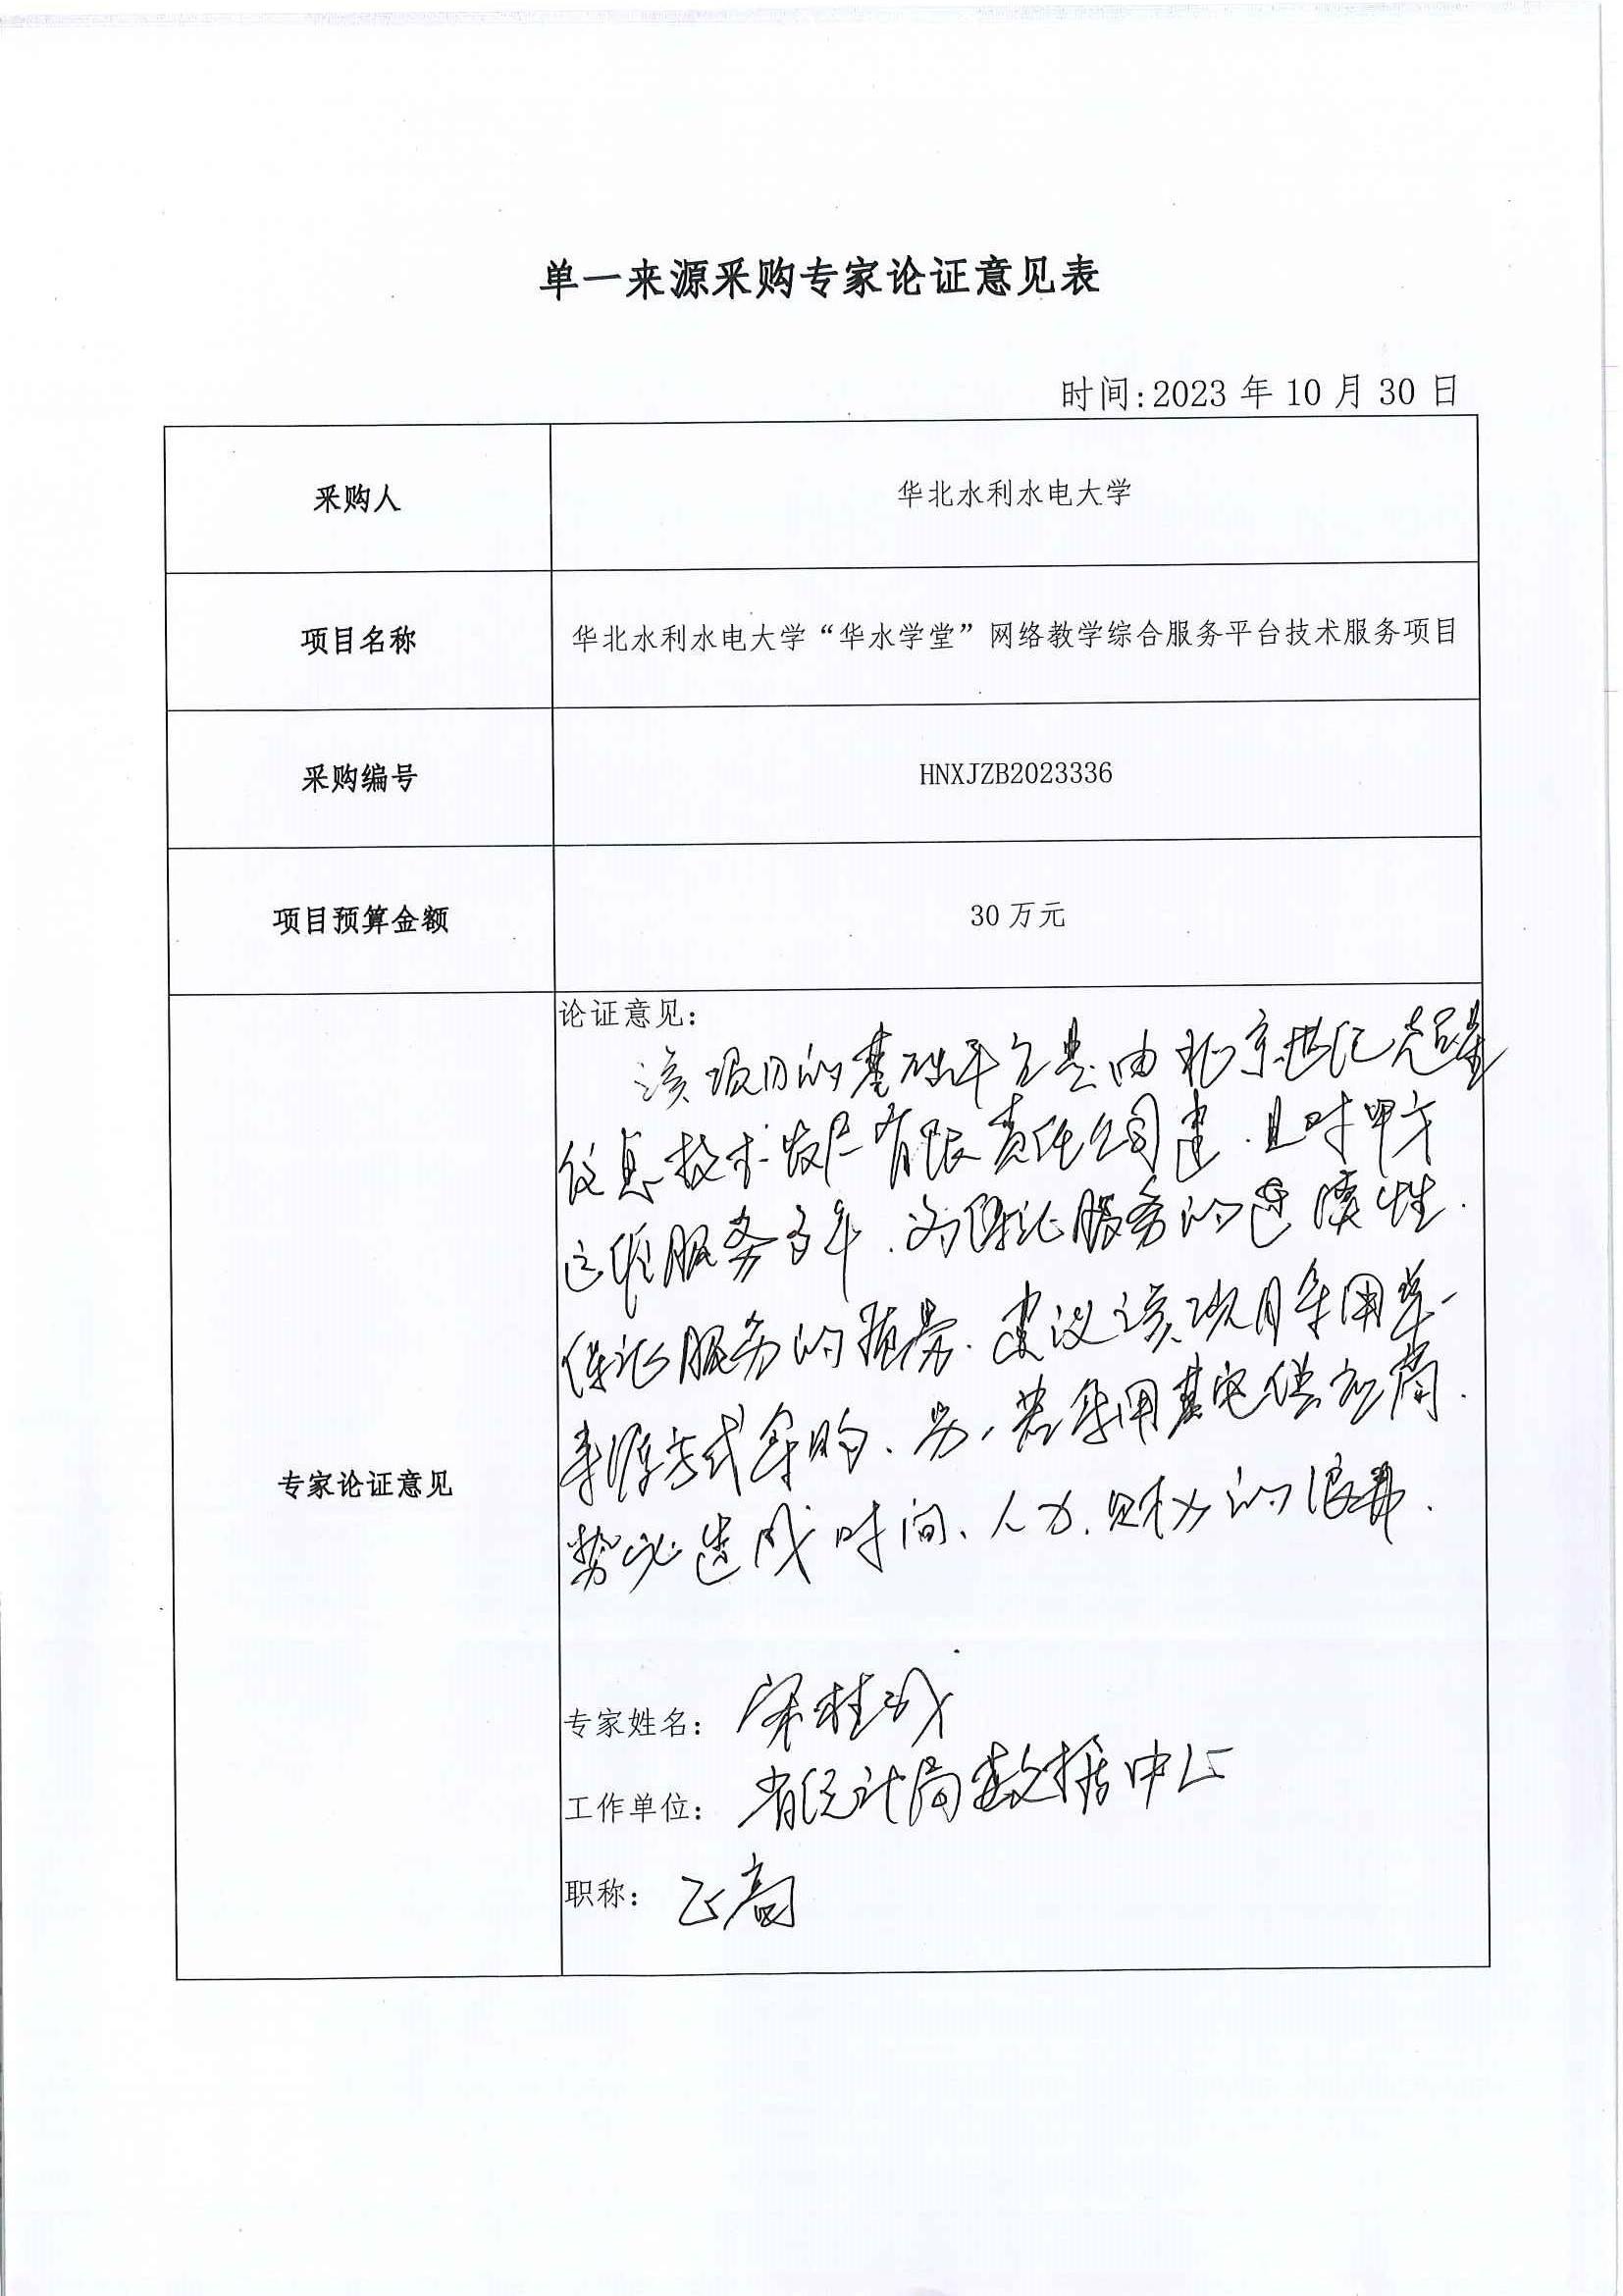 单一来源采购专家论证意见表
时间:2023 年 10 月 30 日
采购人
华北水利水电大学
项目名称
华北水利水电大学“华水学堂”网络教学综合服务平台技术服务项目
采购编号
HNXJZB2023336
项目预算金额
30 万元
专家论证意见
论证意见:
该项目的基础平台是由北京世纪超星
信息技术发展有限责任公司建,且对甲方
运维服务多年,为保证服务的连续性.
保证服务的质量.建议该项目采用单一
来源方式采购、另,若采用其它供应商.
势必造成时间、人力、财力的浪费.
专家姓名: 宋桂成
工作单位: 省统计局数据中心
职称: 正高